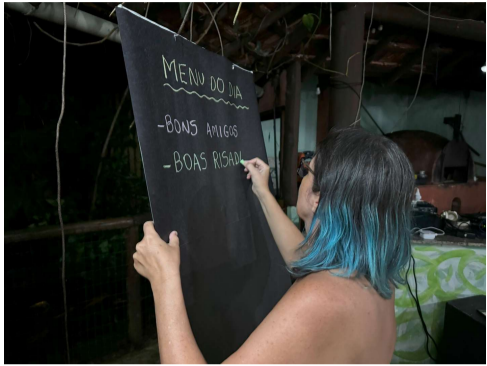 MENU DO DIA
-BONS AMIGOS
-BOAS RISAD